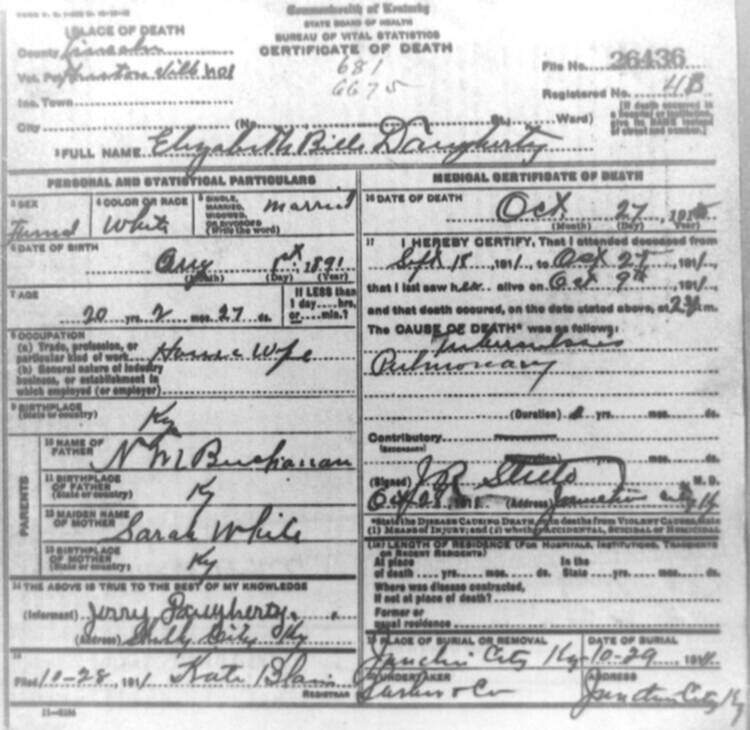 Commonwealth of Kentucky
STATE BOARD OF HEALTH
BUREAU OF VITAL STATISTICS
CERTIFICATE OF DEATH
1 PLACE OF DEATH
County Lincoln
Vot. Pct
Inc. Town
City (No. St.; Ward)
681
6675
File No. 26436
Registered No. 4B
[If death occurred in a hospital or institution, give its NAME instead of street and number.]
2 FULL NAME Elizabeth Bills Daugherty
PERSONAL AND STATISTICAL PARTICULARS
3 SEX
Femal
4 COLOR OR RACE
White
5 SINGLE, MARRIED, WIDOWED, OR DIVORCED (Write the word)
Married
6 DATE OF BIRTH
Aug 1st, 1891
(Month) (Day) (Year)
7 AGE
20 yrs. 2 mos. 27 ds.
If LESS than 1 day....hrs. or....min.?
8 OCCUPATION
(a) Trade, profession, or
particular kind of work House Wife
(b) General nature of industry
business, or establishment in
which employed (or employer)
9 BIRTHPLACE
(State or country) Ky
PARENTS
10 NAME OF FATHER N M Buchanan
11 BIRTHPLACE OF FATHER (State or country) Ky
12 MAIDEN NAME OF MOTHER Sarah White
13 BIRTHPLACE OF MOTHER (State or country) Ky
14 THE ABOVE IS TRUE TO THE BEST OF MY KNOWLEDGE
(Informant) Jerry Daugherty
(Address) City Ky
15
Filed 10-28, 1911 Kate Blain
REGISTRAR
MEDICAL CERTIFICATE OF DEATH
16 DATE OF DEATH
Oct 27, 191
(Month) (Day) (Year)
17 I HEREBY CERTIFY, That I attended deceased from
Sept 18, 1911, to Oct 27, 1911,
that I last saw her alive on Oct 9th, 1911,
and that death occured, on the date stated above, at 2 m.
The CAUSE OF DEATH* was as follows:
Tuberculosis
Pulmonary
(Duration) yrs. mos. ds.
Contributory
(SECONDARY)
(Duration) yrs. mos. ds.
(Signed) M. D.
Oct 28, 191 (Address) Junction City Ky
*State the DISEASE CAUSING DEATH, or, in deaths from VIOLENT CAUSES, state
(1) MEANS OF INJURY; and (2) whether ACCIDENTAL, SUICIDAL or HOMICIDAL
18 LENGTH OF RESIDENCE (FOR HOSPITALS, INSTITUTIONS, TRANSIENTS
OR RECENT RESIDENTS)
At place of death yrs. mos. ds. In the State yrs. mos. ds.
Where was disease contracted,
if not at place of death?
Former or
usual residence
19 PLACE OF BURIAL OR REMOVAL
Junction City Ky
DATE OF BURIAL
10-29 1911
20 UNDERTAKER
& Co
ADDRESS
Junction City Ky